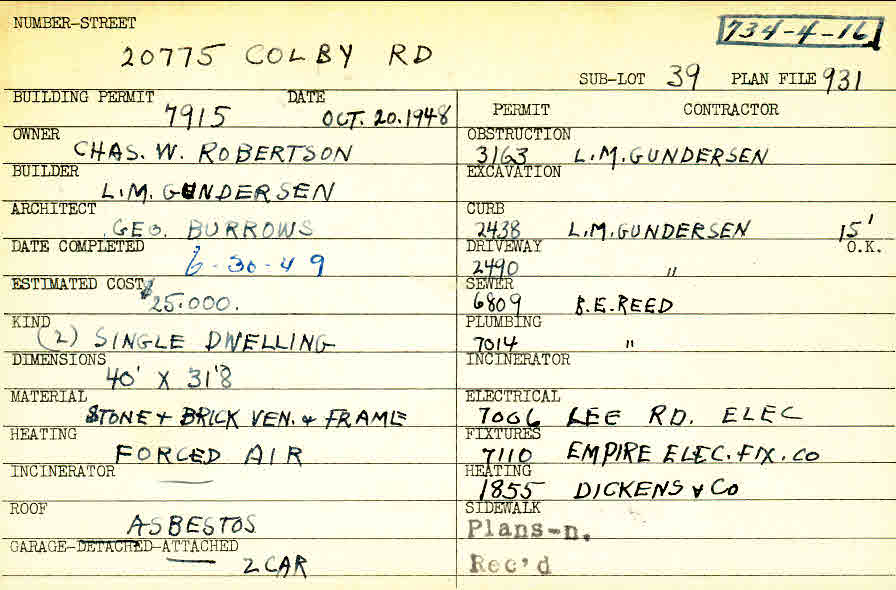 NUMBER-STREET
734-4-16
20775 COLBY RD
SUB-LOT 39 PLAN FILE 931
BUILDING PERMIT DATE
7915 OCT. 20.1948
OWNER
CHAS. W. ROBERTSON
BUILDER
L.M. GUNDERSEN
ARCHITECT
GEO. BURROWS
DATE COMPLETED
6-30-49
ESTIMATED COST
$25.000.
KIND
(2) SINGLE DWELLING
DIMENSIONS
40' X 31'8
MATERIAL
STONE + BRICK VEN. & FRAME
HEATING
FORCED AIR
INCINERATOR
—
ROOF
ASBESTOS
GARAGE-DETACHED-ATTACHED
2 CAR
PERMIT CONTRACTOR
OBSTRUCTION
3163 L.M. GUNDERSEN
EXCAVATION
CURB
2438 L.M. GUNDERSEN 15'
DRIVEWAY O.K.
2490 "
SEWER
6809 B.E. REED
PLUMBING
7014 "
INCINERATOR
ELECTRICAL
7006 LEE RD. ELEC
FIXTURES
7110 EMPIRE ELEC. FIX. CO
HEATING
1855 DICKENS & CO
SIDEWALK
Plans-n.
Rec'd